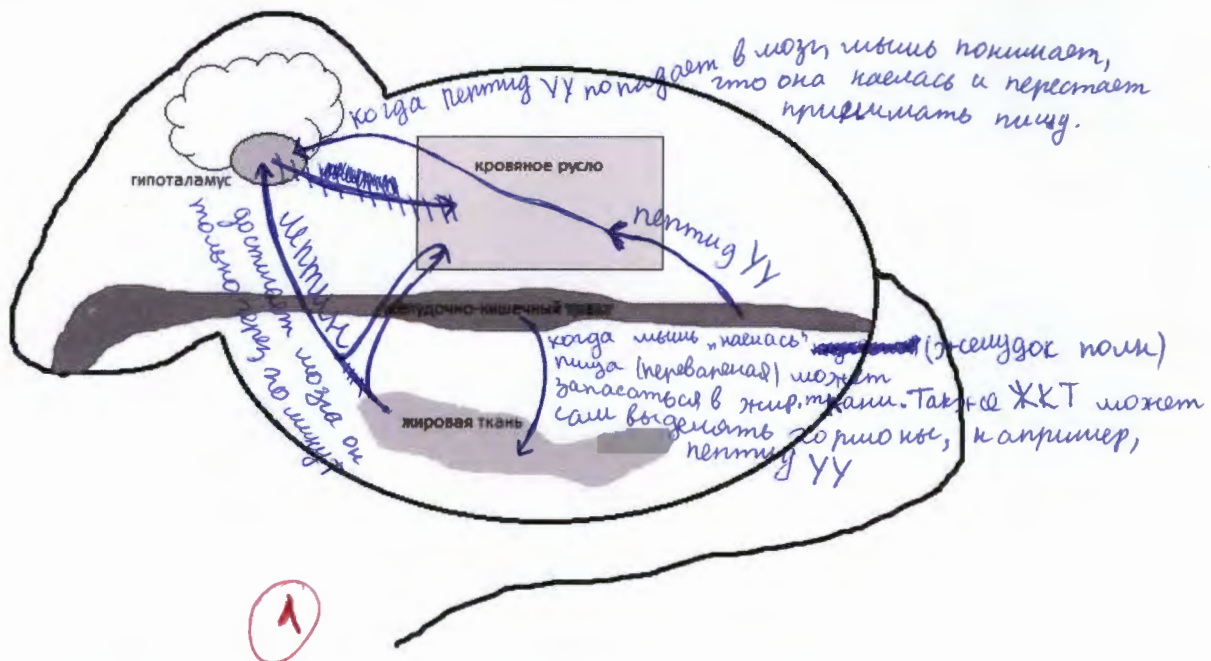 когда пептид YY попадает в мозг, мышь понимает,
что она наелась и перестает
принимать пищу.
гипоталамус
кровяное русло
пептид YY
Лептин
достигает мозга он
только через по минут
желудочно-кишечный тракт
когда мышь „наелась" (желудок полн)
пища (перевареная) может
запасаться в жир. ткани. Также ЖКТ может
сам выделять гормоны, например,
пептид YY
жировая ткань
1